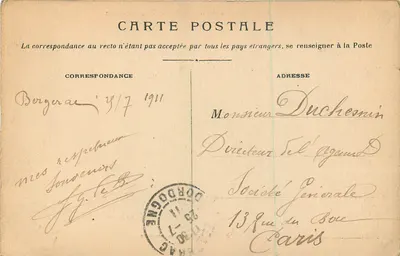 CARTE POSTALE
La correspondance au recto n'étant pas acceptée par tous les pays étrangers, se renseigner à la Poste
CORRESPONDANCE
Bergerac 25/7 1911
mes respectueux
souvenirs
ADRESSE
Monsieur Duchemin
Directeur de l'agence D
Société Générale
13 Rue du Bac
Paris
DORDOGNE
RAC
25
-7
11